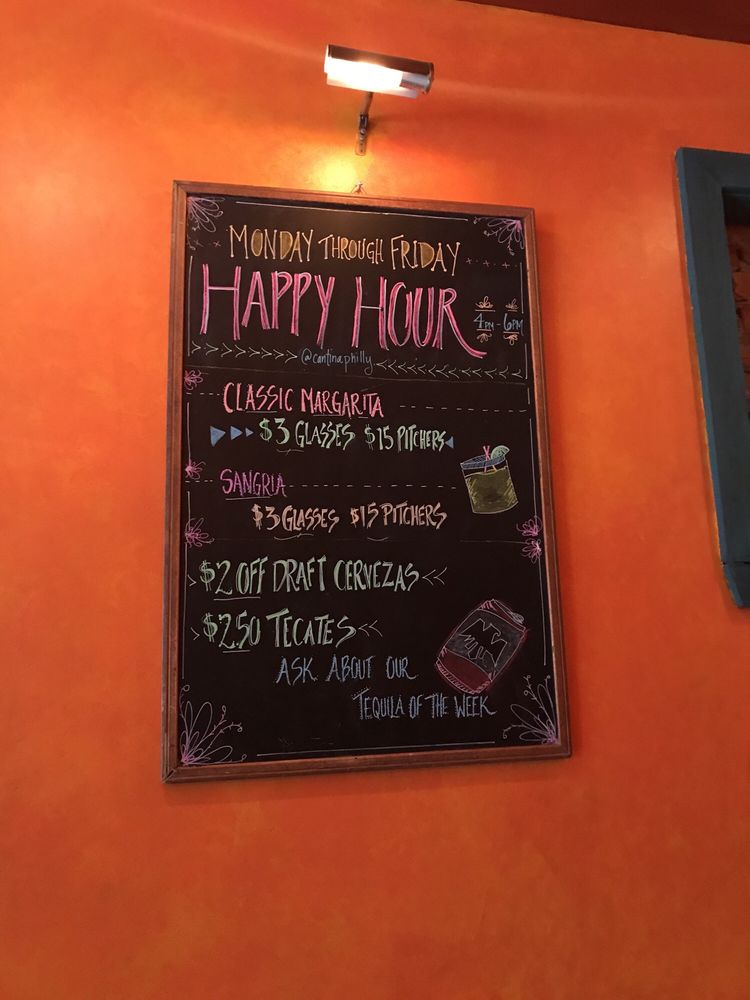 MONDAY THROUGH FRIDAY
HAPPY HOUR 4PM - 6PM
@cantinaphilly
CLASSIC MARGARITA
$3 GLASSES $15 PITCHERS
SANGRIA
$3 GLASSES $15 PITCHERS
$2 OFF DRAFT CERVEZAS
$2.50 TECATES
ASK ABOUT OUR
TEQUILA OF THE WEEK